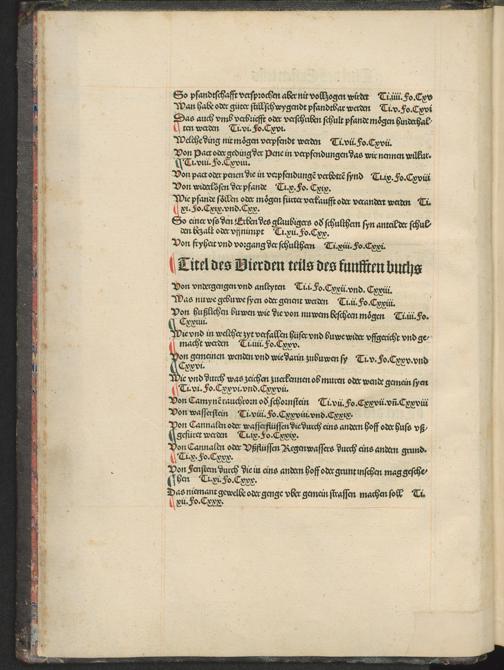 So pfandtschafft versprochen aber nit vollzogen würdet Ti.iiii.Fo.Cxv
Man habe oder güter stillschwygendt pfandtbar werden Ti.v.Fo.Cxvi
Das auch vmb verbriefft oder verschriben schult pfande mögen hinderhal-
ten werden Ti.vi.Fo.Cxvi.
Welche ding nit mögen verpfendt werden Ti.vii.Fo.Cxvii.
Von Pact oder geding der Pene in verpfendungen das wir nennen wilkur.
Ti.viii.Fo.Cxviii.
Von pact oder penen die in verpfendungē verbotē synd Ti.ix.Fo.Cxviii
Von widerlösen der pfande Ti.x.Fo.Cxix.
Wie pfande söllen oder mögen fürter verkaufft oder verandert werden Ti.
xi.Fo.Cxix.vnd.Cxx.
So einer vß den Erben des glaubigers od schulthern syn anteil der schul-
den bezalt oder vffnimpt Ti.xii.Fo.Cxx.
Von fryheit vnd vorgang der schulthern Ti.xiii.Fo.Cxxi.
Titel des Vierden teils des funfften buchs
Von vndergengen vnd anleyten Ti.i.Fo.Cxxii.vnd.Cxxiii.
Was nuwe gebuwe syen oder genent werden Ti.ii.Fo.Cxxiii.
Von hußlichen buwen wie die von nuwem bescheen mögen Ti.iii.Fo.
Cxxiiii.
Wie vnd in welcher zyt verfallen hüser vnd buwe wider vffgericht vnd ge-
macht werden Ti.iiii.Fo.Cxxv.
Von gemeinen wenden vnd wie darin zubuwen sy Ti.v.Fo.Cxxv.vnd
Cxxvi.
Wie vnd durch was zeichen zuerkennen ob muren oder wende gemein syen
Ti.vi.Fo.Cxxvi.vnd.Cxxvii.
Von Camynē rauchron od schornstein Ti.vii.Fo.Cxxvii.vñ.Cxxviii
Von wasserstein Ti.viii.Fo.Cxxviii.vnd.Cxxix.
Von Cannalen oder wasserflüssen die durch eins andern hoff oder huß vß-
gefürt werden Ti.ix.Fo.Cxxix.
Von Cannalen oder Vßflüssen Regenwassers durch eins andern grund.
Ti.x.Fo.Cxxx.
Von Fenstern durch die in eins andern hoff oder grunt insehen mag gesche-
hen Ti.xi.Fo.Cxxx.
Das niemant gewelbe oder genge vber gemein strassen machen soll Ti.
xii.Fo.Cxxx.